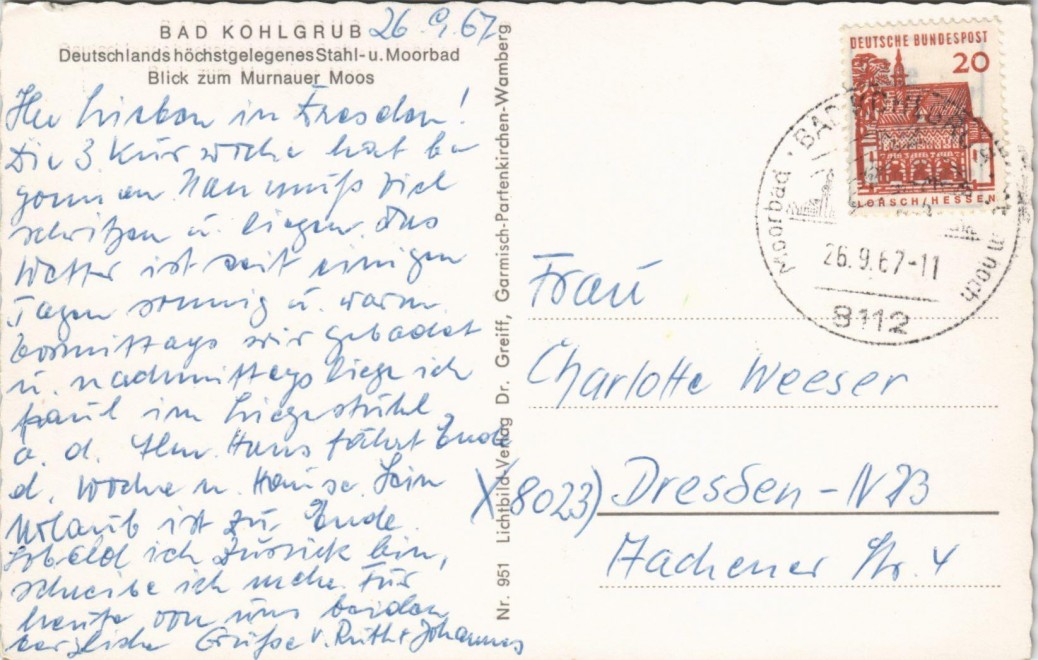 BAD KOHLGRUB 26.9.67
Deutschlands höchstgelegenes Stahl- u. Moorbad
Blick zum Murnauer Moos
Ihr Lieben in Dresden!
Die 3 Kurwoche hat be-
gonnen. Man muß viel
schwitzen u. liegen. Das
Wetter ist seit einigen
Tagen sonnig u. warm.
Vormittags wir gebadet
u. nachmittags liege ich
faul im Liegestuhl
a. d. Hans fährt Ende
d. Woche n. Hause. Sein
Urlaub ist zu Ende.
Sobald ich zurück bin,
schreibe ich mehr. Für
heute von uns beiden
herzliche Grüße v. Ruth + Johannes
Nr. 951 Lichtbild-Verlag Dr. Greiff, Garmisch-Partenkirchen-Wamberg
DEUTSCHE BUNDESPOST
20
LORSCH/HESSEN
Moorbad · BAD
26.9.67-11
8112
Frau
Charlotte Weeser
X(8023) Dresden-N23
Aachener Str. 4